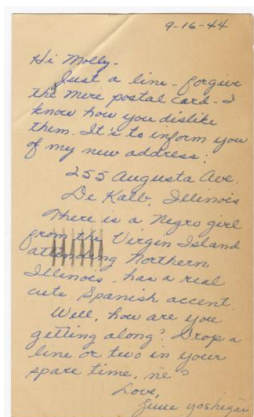 9-16-44
Hi Molly-
Just a line - forgive
the mere postal card - I
know how you dislike
them. It is to inform you
of my new address:
255 Augusta Ave
De Kalb, Illinois
There is a Negro girl
from the Virgin Island
attending Northern
Illinois. has a real
cute Spanish accent.
Well, how are you
getting along? Drop a
line or two in your
spare time, ne?
Love,
June